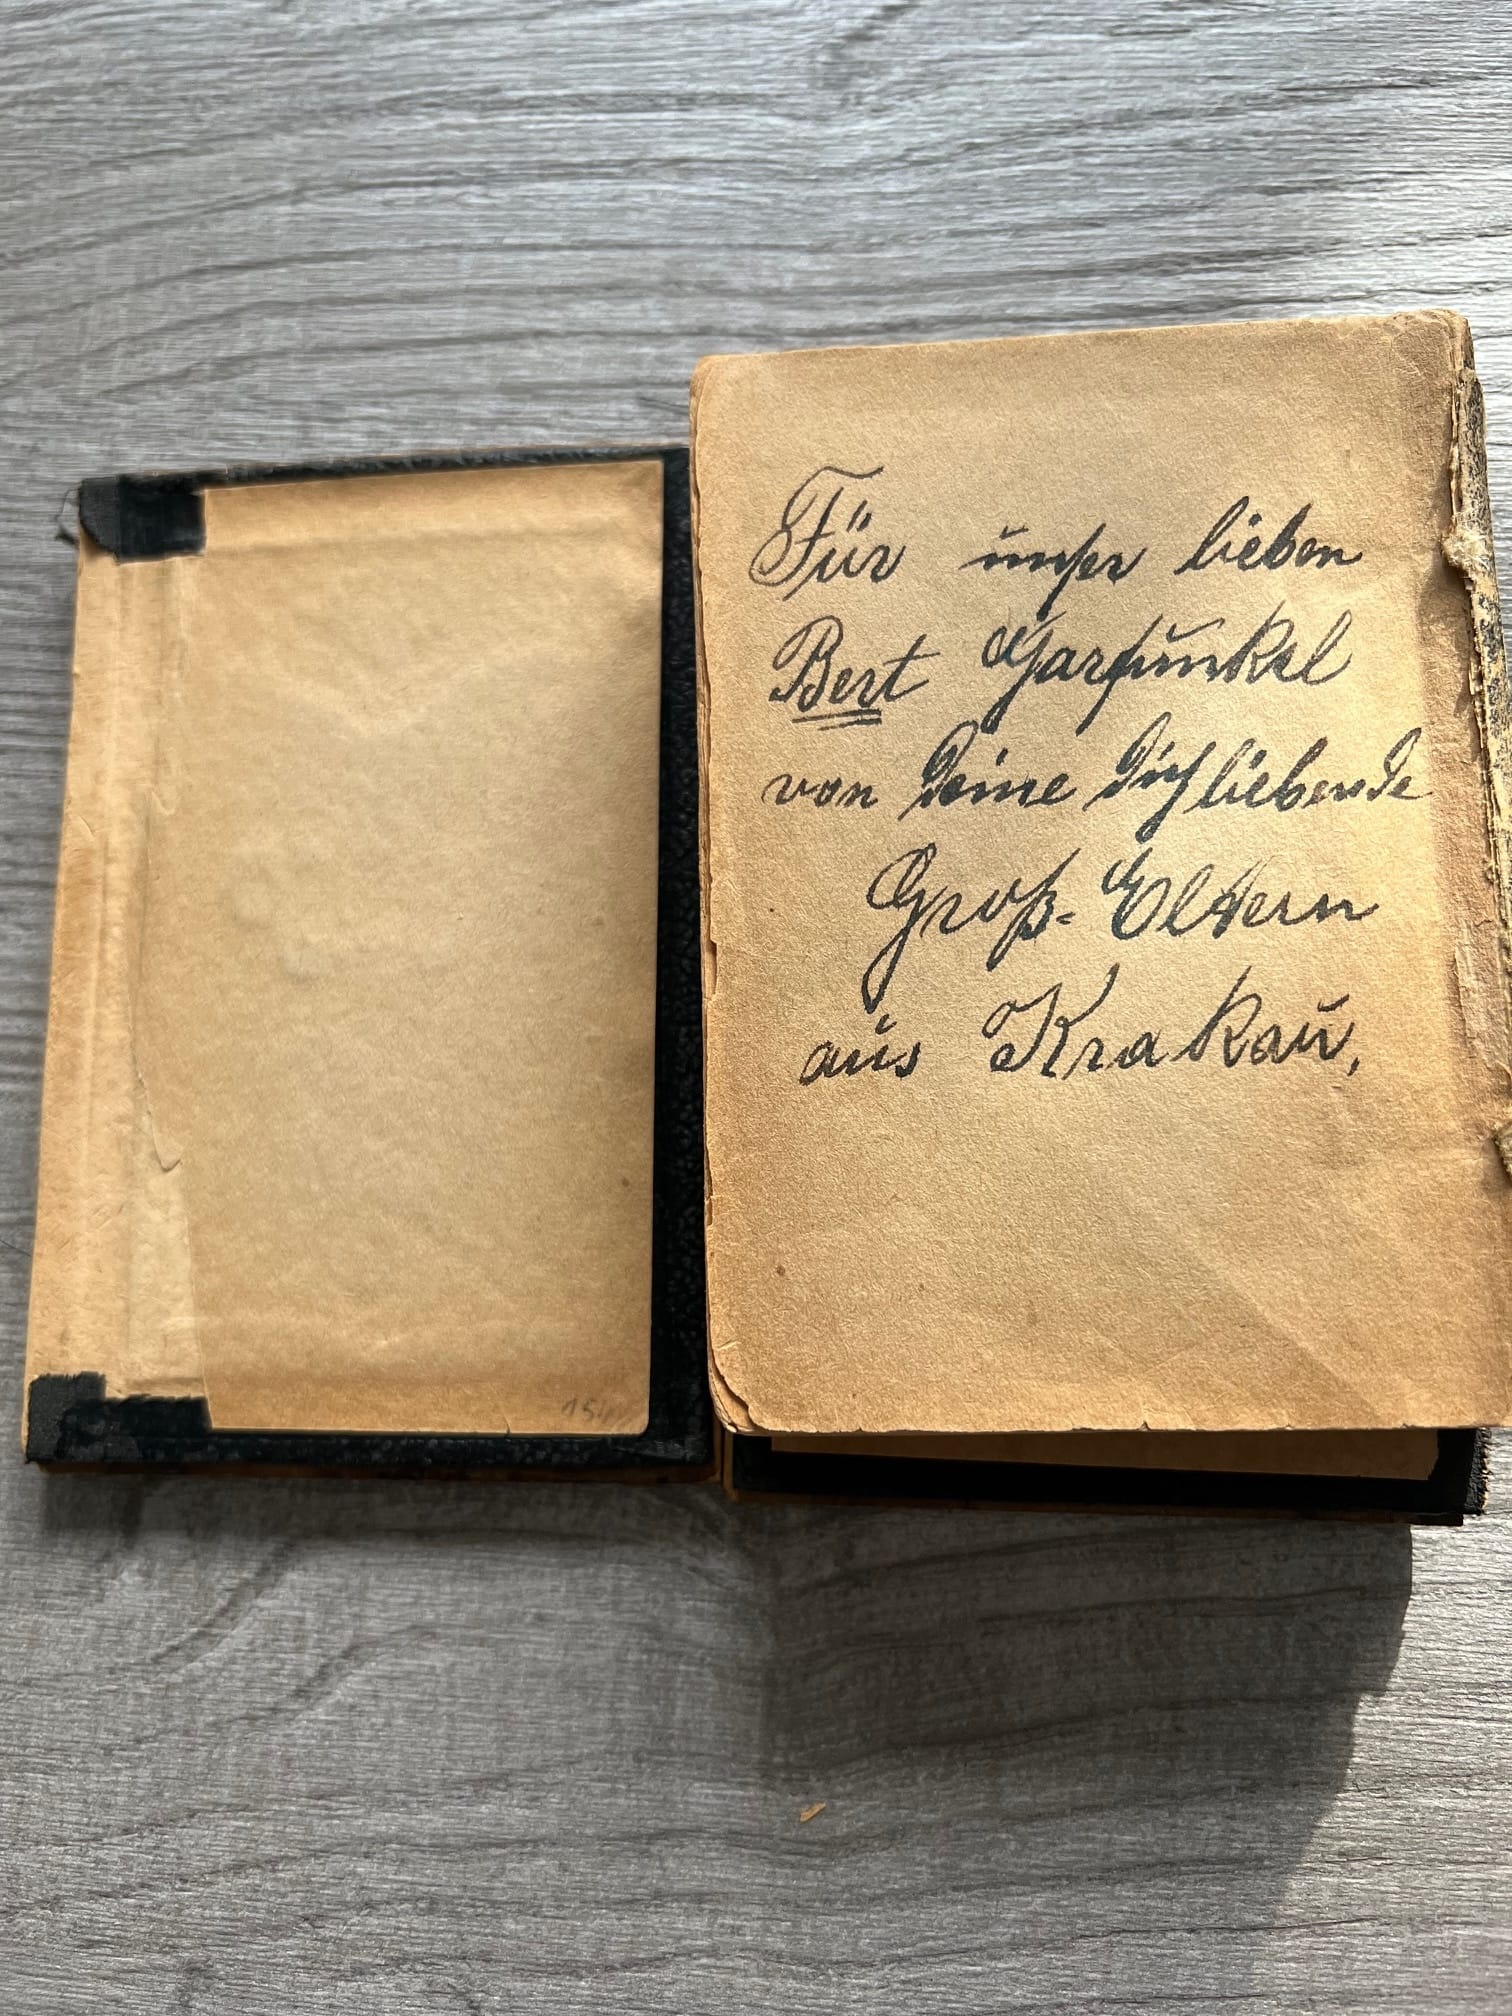 Für unser lieben
Bert Garfunkel
von Deine Dich liebende
Groß-Eltern
aus Krakau,